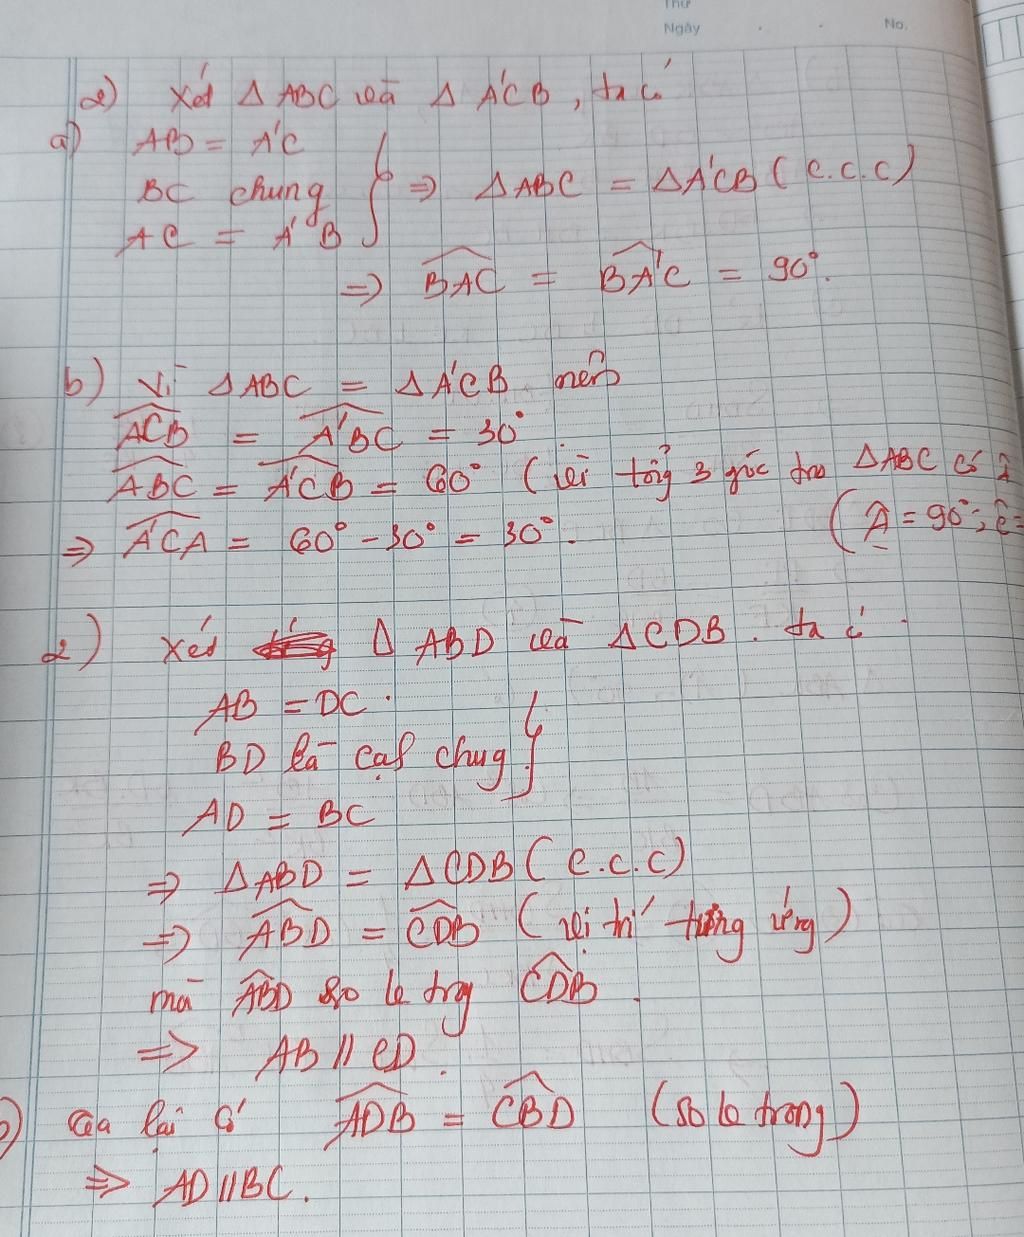 Thứ
Ngày
No.
2) Xét Δ ABC và Δ A'CB, ta có
a) AB = A'C
BC chung } => ΔABC = ΔA'CB (c.c.c)
AC = A'B
=> BAC = BA'C = 90°.
b) Vì ΔABC = ΔA'CB nên
ACB = A'BC = 30°
ABC = A'CB = 60° (vì tổng 3 góc tro ΔABC có
=> A'CA = 60° - 30° = 30°. (A = 90°; C =
2) Xét Δ ABD và ΔCDB. ta có
AB = DC.
BD là cạh chug }
AD = BC
=> ΔABD = ΔCDB (c.c.c)
=> ABD = CDB (vị trí tương ứng)
mà ABD so le trog CDB.
=> AB // CD.
b) Ta lại có ADB = CBD (so le trong)
=> AD // BC.